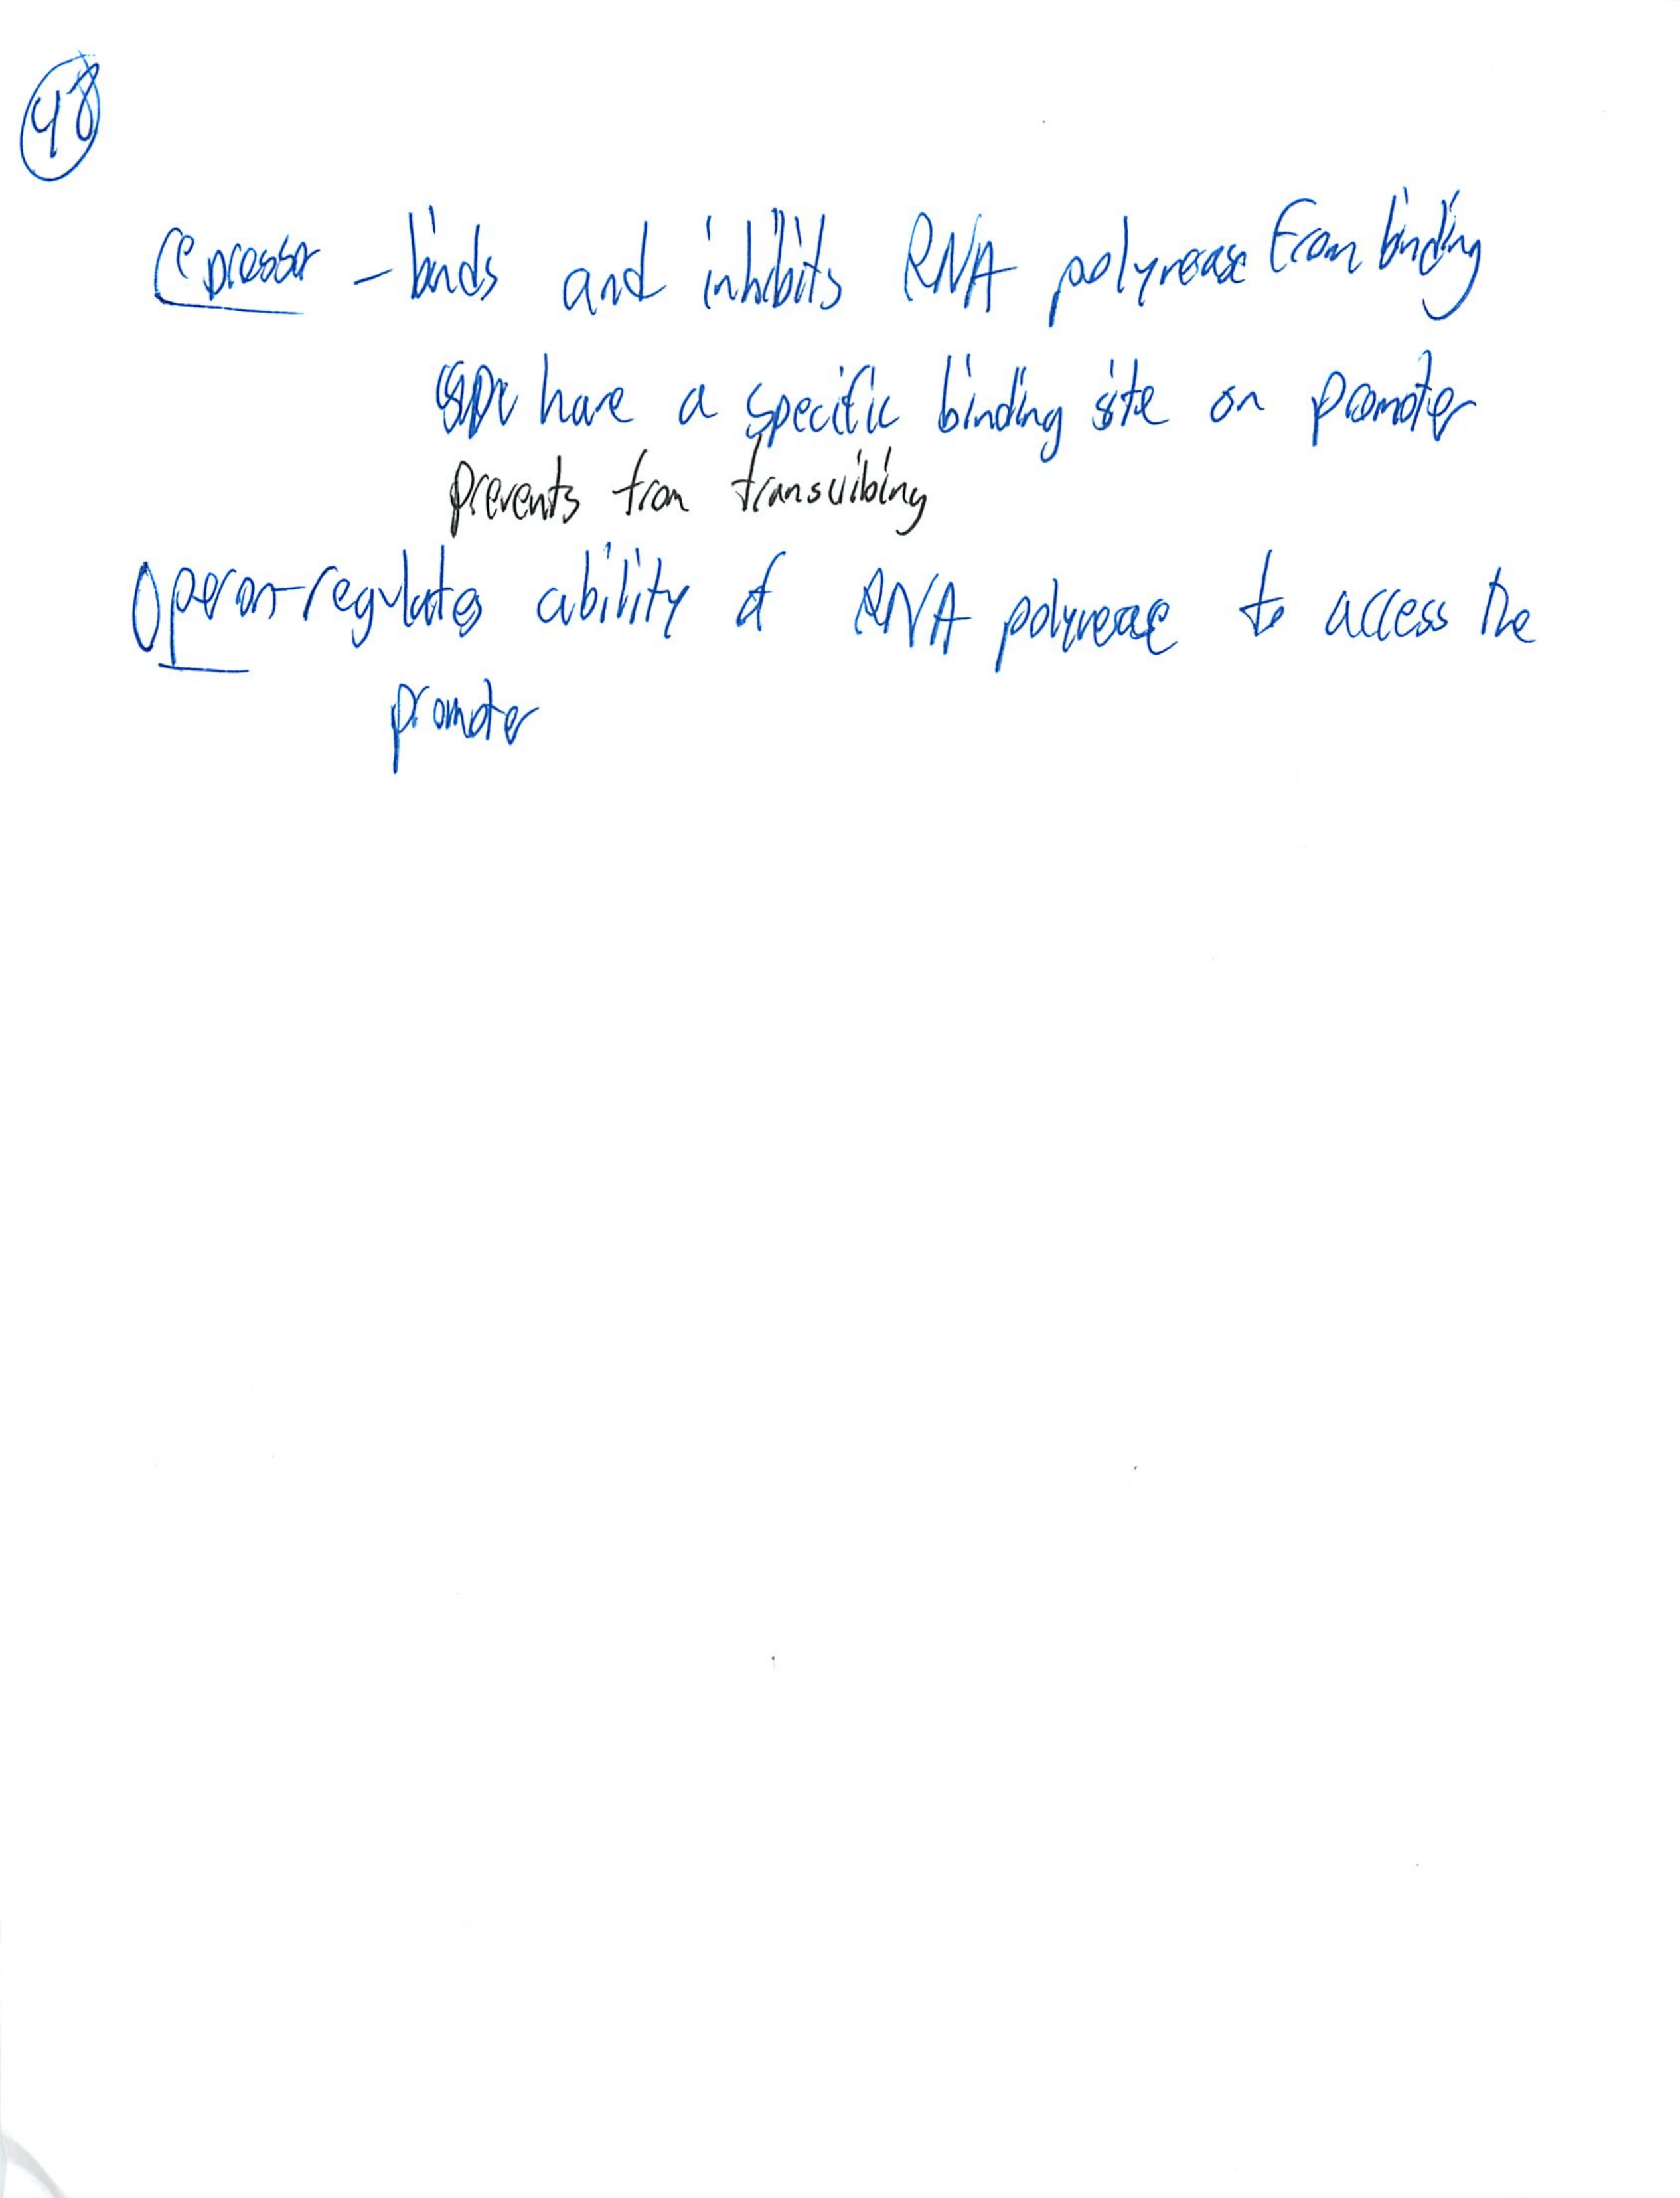 48
repressor - binds and inhibits RNA polymerase from binding
have a specific binding site on promoter
prevents from transcribing
Operon - regulates ability of RNA polymerase to access the
promoter